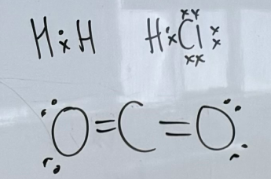 H·×H H·×Cl
O=C=O